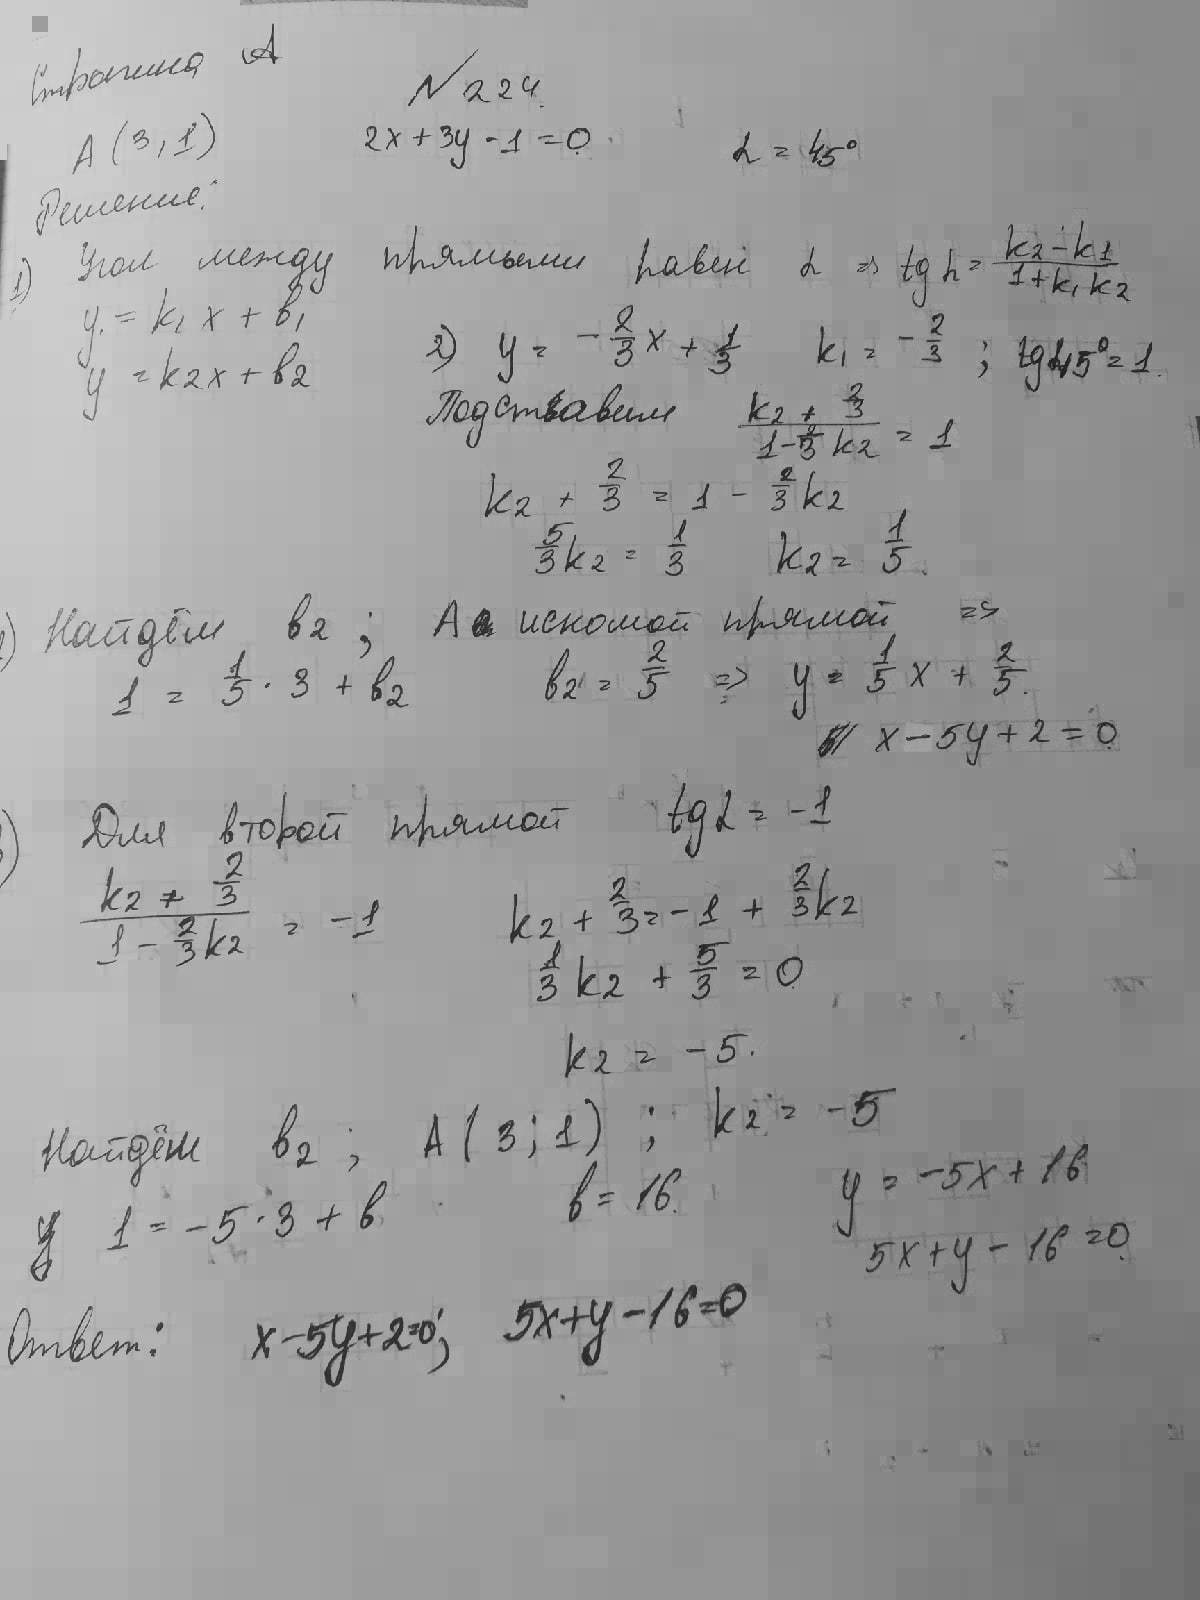 Страница А
№ 224.
А(3,1) 2x+3y-1=0. α = 45°
Решение:
1) Угол между прямыми равен α => tg α = (k2-k1)/(1+k1k2)
y = k1x + в1
y = k2x + в2
2) y = -2/3x + 1/3 k1 = -2/3 ; tg45° = 1.
Подставим (k2 + 2/3)/(1-2/3k2) = 1
k2 + 2/3 = 1 - 2/3k2
5/3k2 = 1/3 k2 = 1/5.
Найдём в2 ; А искомой прямой =>
1 = 1/5 · 3 + в2 в2 = 2/5 => y = 1/5x + 2/5.
x - 5y + 2 = 0
Для второй прямой tgα = -1
(k2 + 2/3)/(1 - 2/3k2) = -1 k2 + 2/3 = -1 + 2/3k2
1/3k2 + 5/3 = 0
k2 = -5.
Найдём в2 ; А(3;1) ; k2 = -5
y 1 = -5·3 + в в = 16. y = -5x + 16
5x+y - 16 = 0.
Ответ: x-5y+2=0; 5x+y-16=0